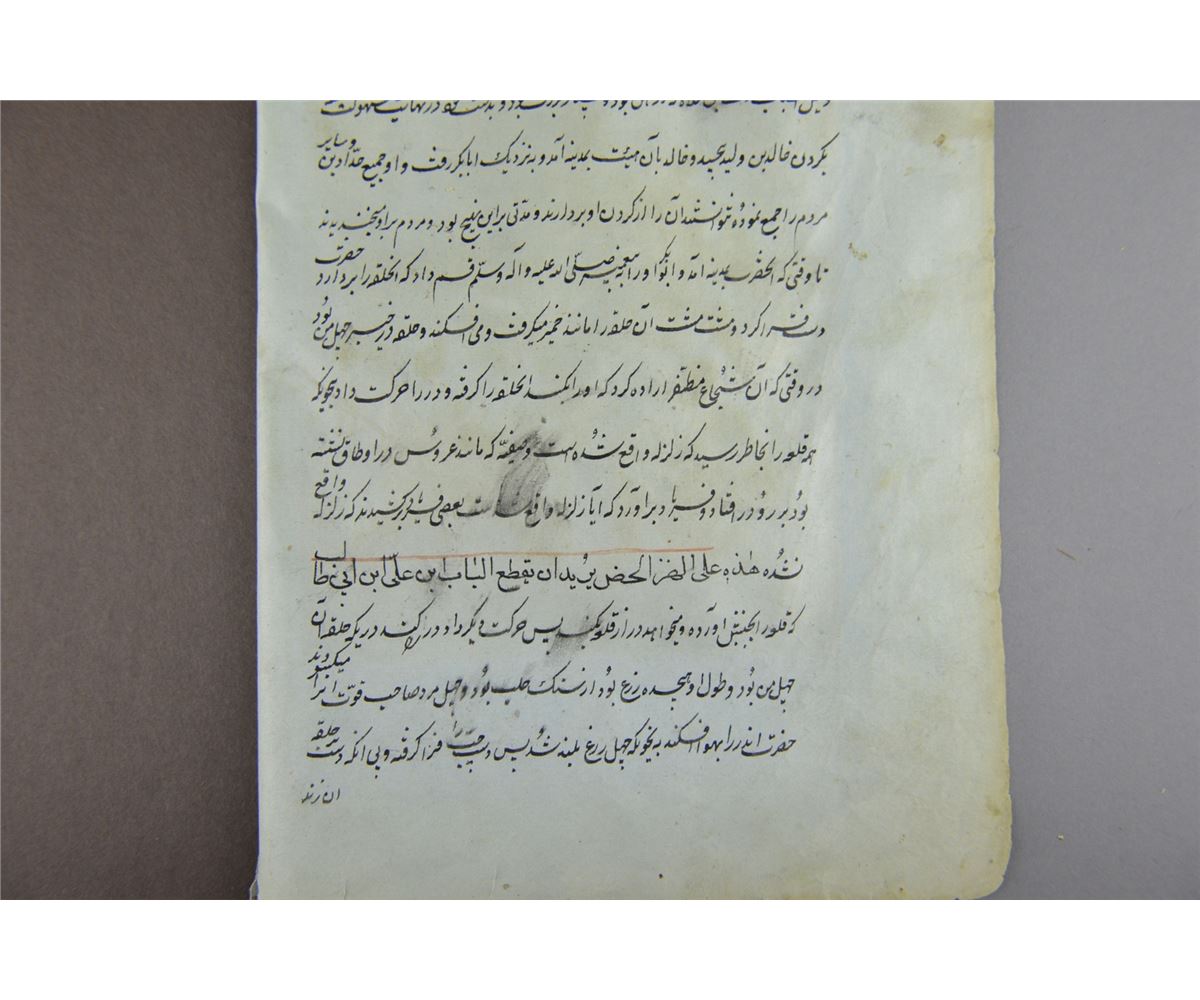 بگردن خالدبن ولید پیچید و خالد بآن هیئت بمدینه آمد و به نزدیک ابابکر رفت و او جمیع حدادین و سایر
مردم را جمع نموده نتوانستند آن را از گردن او بردارند و مدتی براین نهج بود و مردم براو میخندیدند
تا وقتی که انحضرت بمدینه آمد و ابوبکر اورا به پیغمبر صلی الله علیه و آله وسلم قسم داد که انحلقه را بردارد حضرت
دست فرا کرد و مشت مشت آن حلقه را مانند خمیر میگرفت و می افکند و حلقه در خیبر چهل من بود
در وقتی که آن شجاع مظفر اراده کرد که اورا بکند انحلقه را گرفته و در را حرکت داد بنحویکه
همه قلعه را بخاطر رسید که زلزله واقع شده است و صفیه که مانند عروس در اوطاق نشسته
بود بر رو در افتاد و فریاد براورد که آیا زلزله واقع شده است بعضی فریاد برکشیدند که زلزله واقع
نشده هذه علی الهز الحض یرید ان یقطع الباب ابن علی ابن ابی طالب
که قلعه را بجنبش اورده و میخواهد در از قلعه بکند پس حرکت دیگر داد در را کند در یک حلقه آن
چهل من بود و طول او هیجده زرع بود از سنک صلب بود و چهل مرد صاحب قوت انرا میکشودند
حضرت اندر را بهوا افکند بنحویکه چهل زرع بلند شد پس دست چپ را فرا گرفته و بی انکه دست بر حلقه
ان زند